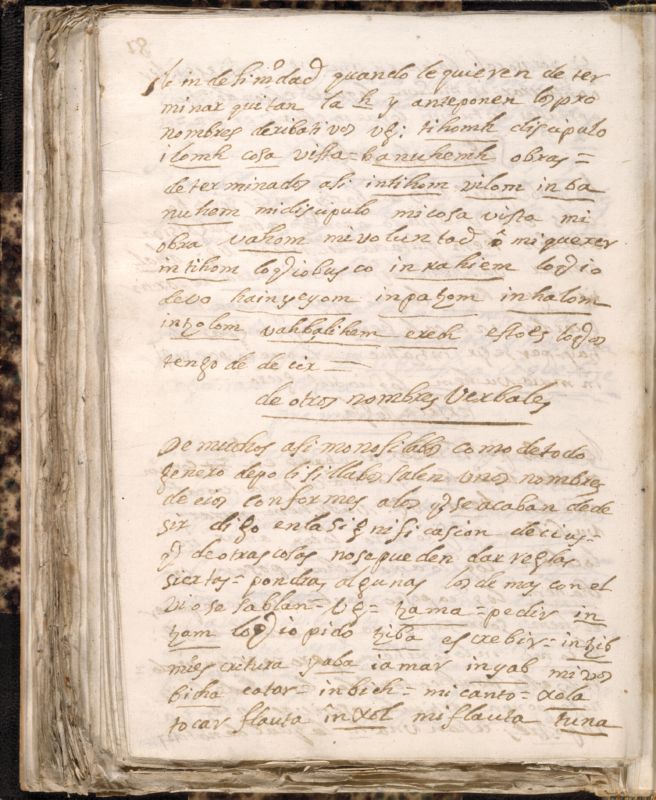 87
le indefinidad quando le quieren de ter
minar quitan la h y anteponen los pro
nombres deribativos vg: tihomh discipulo
ilomh cosa vista = banuhemh obras =
determinados asi intihom vilom in ba
nuhem mi discipulo mi cosa vista mi
obra vahom mi voluntad ó mi querer
intihom loq̃ io busco inxahiem loq̃ io
devo hainyeyom inpatzom inhalom
intzolom vahbalihem exebh esto es loq̃ os
tengo de decir —
de otros nombres Verbales
De muchos asi monosilabos como de todo
genero de polisillabos salen unos nombres
de cios conformes a los q̃ se acaban de de
sir digo en la significasion de cius =
q̃ de otras cosas no se pueden dar reglas
siertas = pondras algunas los demas con el
Uso se sablan = Vg = tzama = pedir in
tzam loq̃ io pido tziba escrebir = intzib
mi escritura yaba iamar inyab mi vos
bicha catar = inbich = mi canto = xola
tocar flauta inxol mi flauta tuna